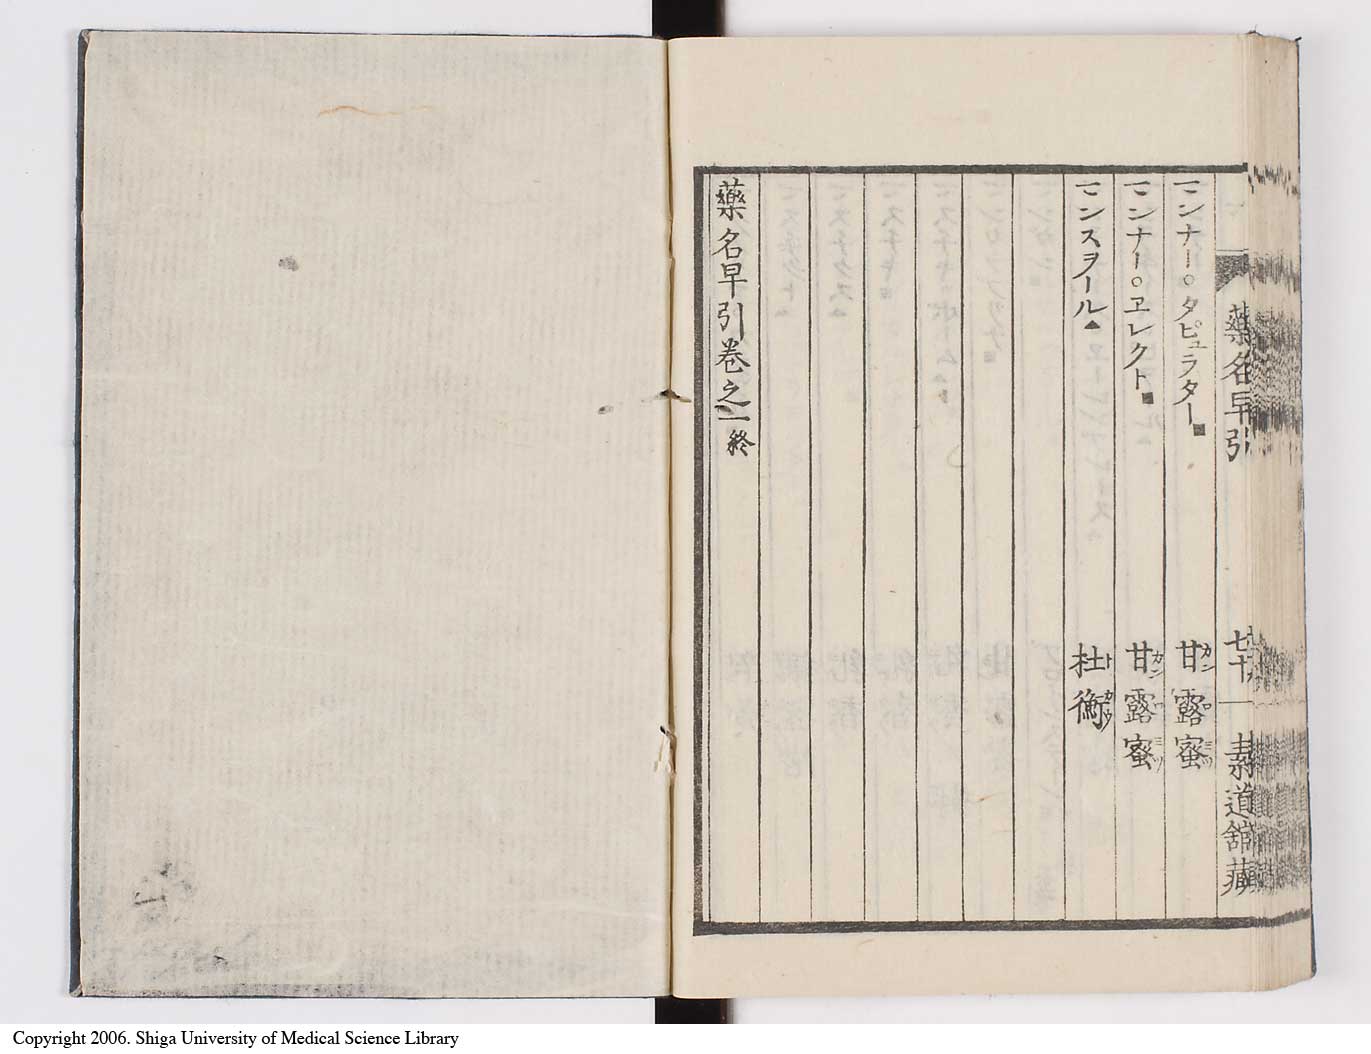 藥名早引
七十
翥道舘藏
マンナー○タピュラター■ 甘露蜜 カンロミツ
マンナー○ヱレクト■ 甘露蜜 カンロミツ
マンスヲール▲ 杜衡 トカウ
藥名早引卷之一終
Copyright 2006. Shiga University of Medical Science Library